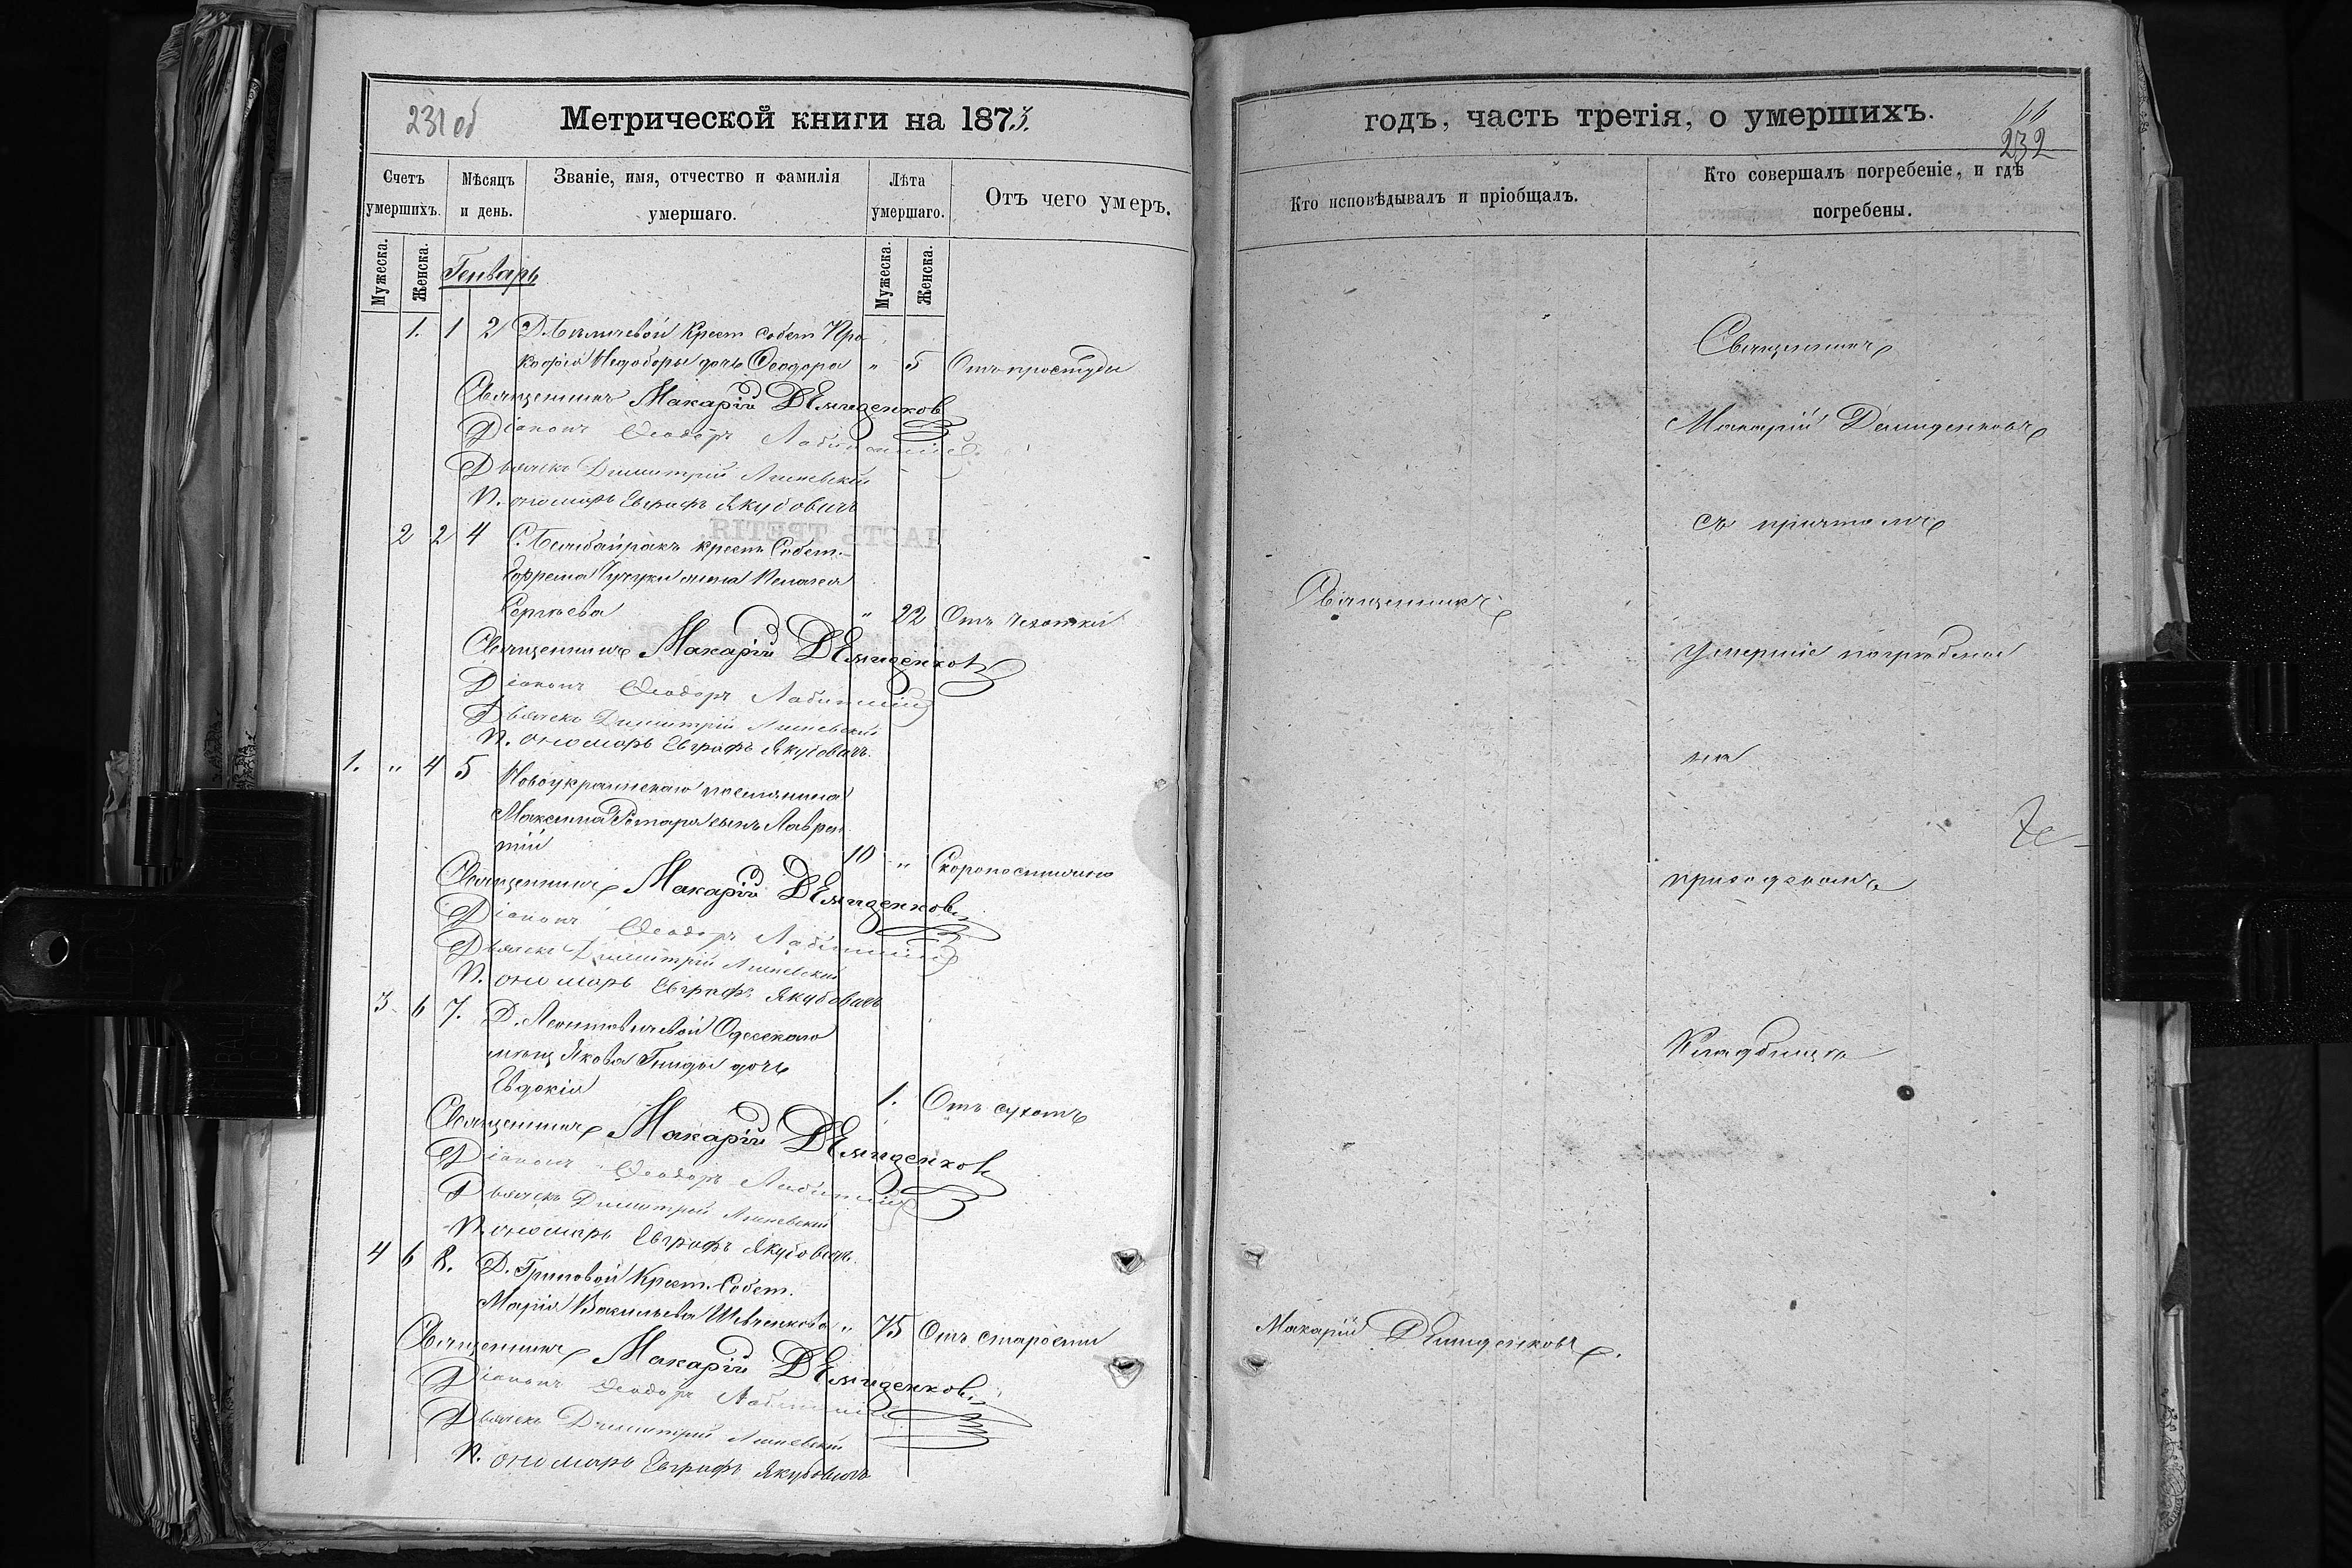 231 об
Метрической книги на 1873.
Счетъ умершихъ.
Мѣсяцъ и день.
Званіе, имя, отчество и фамилія умершаго.
Лѣта умершаго.
Отъ чего умеръ.
Мужеска.
Женска.
Мужеска.
Женска.
Генварь
1. 1 2 Крест собст Про
кофія дочь Ѳеодора " 5 Отъ простуды
Священникъ Макарій Демиденковъ
Діаконъ Ѳеодоръ
Дьячекъ Димитрій
Пономарь Евграфъ Якубовичъ
2 2 4 С. крест. Собст.
Ефрема жена Пелагея
Сергѣева " 22 Отъ чахотки
Священникъ Макарій Демиденковъ
Діаконъ Ѳеодоръ
Дьячекъ Димитрій
Пономарь Евграфъ Якубовичъ
1. " 4 5 Новоукраинскаго поселянина
Максима Ротаря сынъ Лаврен
тій 10 " Скоропостижно
Священникъ Макарій Демиденковъ
Діаконъ Ѳеодоръ
Дьячекъ Димитрій
Пономарь Евграфъ Якубовичъ
3 6 7. Д. Леонтовичевой Одесскаго
мѣщ Якова дочь
Евдокія 1. Отъ сухотъ
Священникъ Макарій Демиденковъ
Діаконъ Ѳеодоръ
Дьячекъ Димитрій
Пономарь Евграфъ Якубовичъ
4 6 8. Д. Крест. Собст.
Марія Васильева Шевченкова " 75 Отъ старости
Священникъ Макарій Демиденковъ
Діаконъ Ѳеодоръ
Дьячекъ Димитрій
Пономарь Евграфъ Якубовичъ
годъ, часть третія, о умершихъ.
232
Кто исповѣдывалъ и пріобщалъ.
Кто совершалъ погребеніе, и гдѣ погребены.
Священникъ
Макарій Демиденковъ
съ причтомъ
Священникъ
Умершіе погребены
на
приходскомъ
Кладбищѣ
Макарій Демиденковъ.